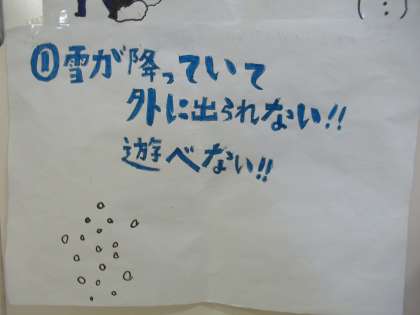 ①雪が降っていて
外に出られない!!
遊べない!!